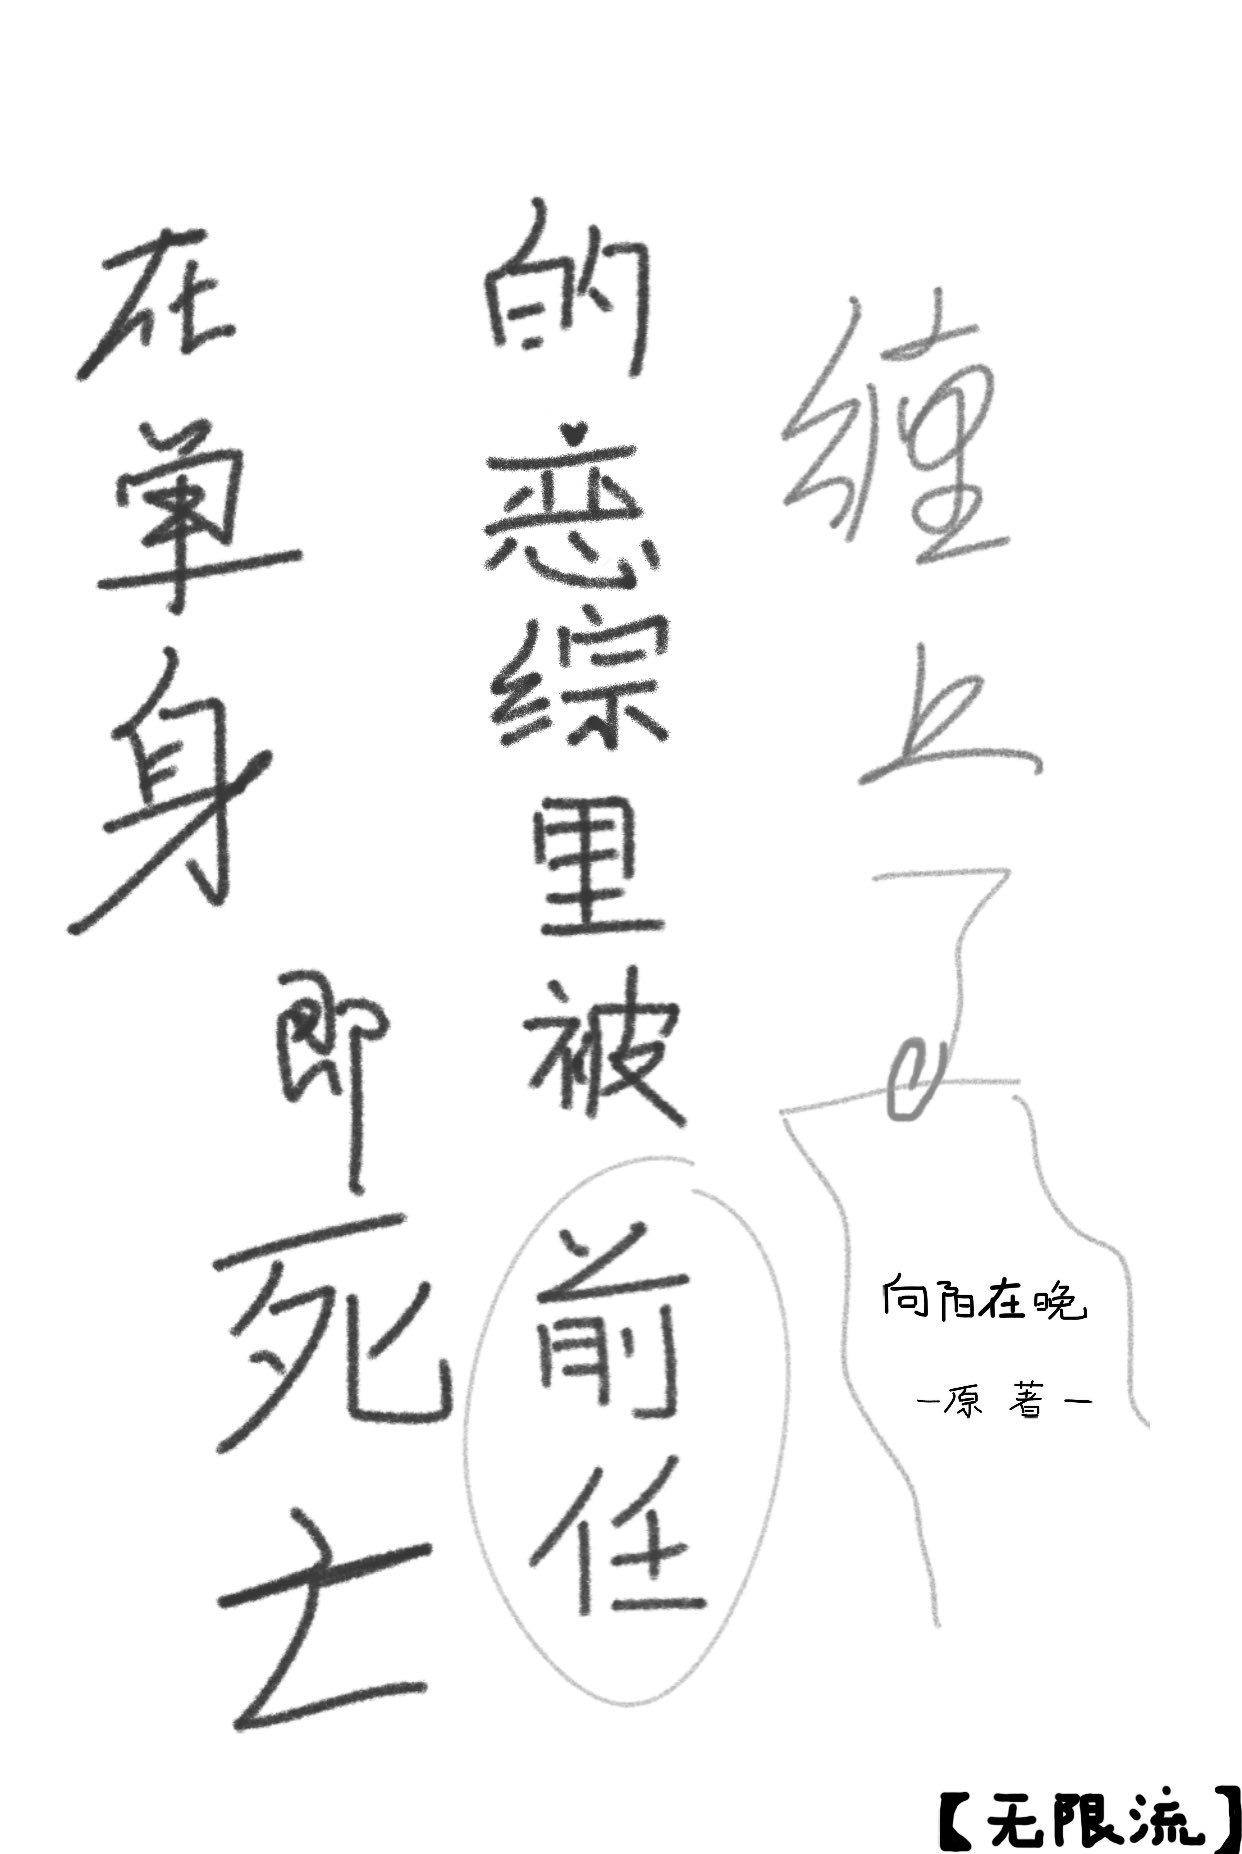 在单身
即死亡
的恋综里被
前任
缠上了
向阳在晚
—原 著—
【无限流】